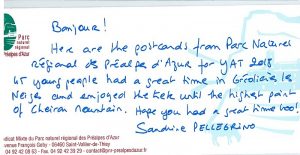 Parc
naturel
régional
Préalpes d'Azur
Bonjour!
Here are the postcards from Parc Naturel
régional de Préalpes d'Azur for YAT 2018
45 young people had a great time in Gréolières les
Neiges and enjoyed the trek until the highest point
of Cheiron mountain. Hope you had a great time too!
Sandrine PELLEGRINO
dicat Mixte du Parc naturel régional des Préalpes d'Azur
venue François Goby - 06460 Saint-Vallier-de-Thiey
04 92 42 08 63 - Fax. 04 92 42 39 29 - contact@pnr-prealpesdazur.fr